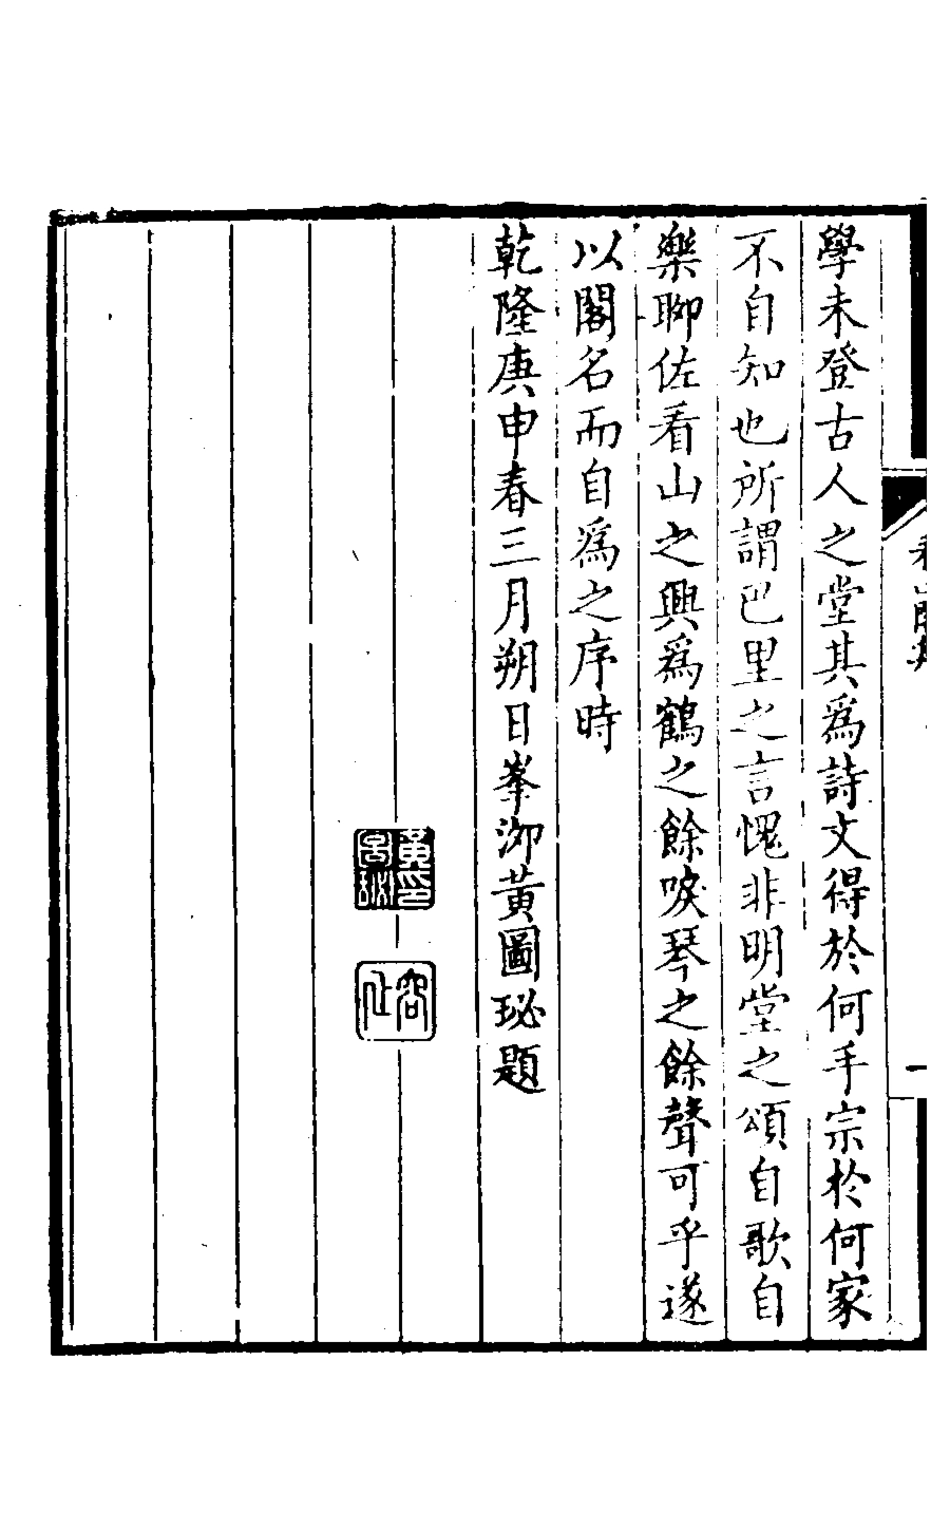 學未登古人之堂其爲詩文得於何手宗於何家
不自知也所謂巴里之言愧非明堂之頌自歌自
樂聊佐看山之興爲鶴之餘唳琴之餘聲可乎遂
以閣名而自爲之序時
乾隆庚申春三月朔日峯泖黃圖珌題
看山閣集
一